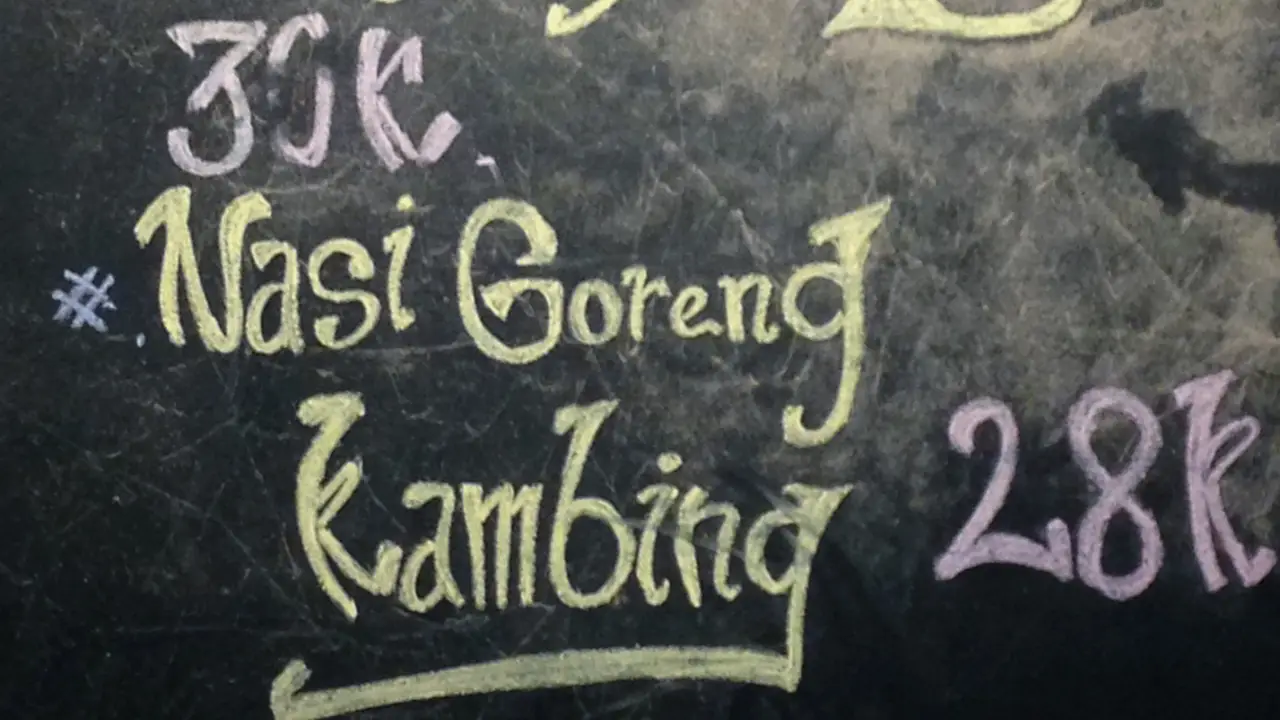 30K
# Nasi Goreng
Kambing 28K